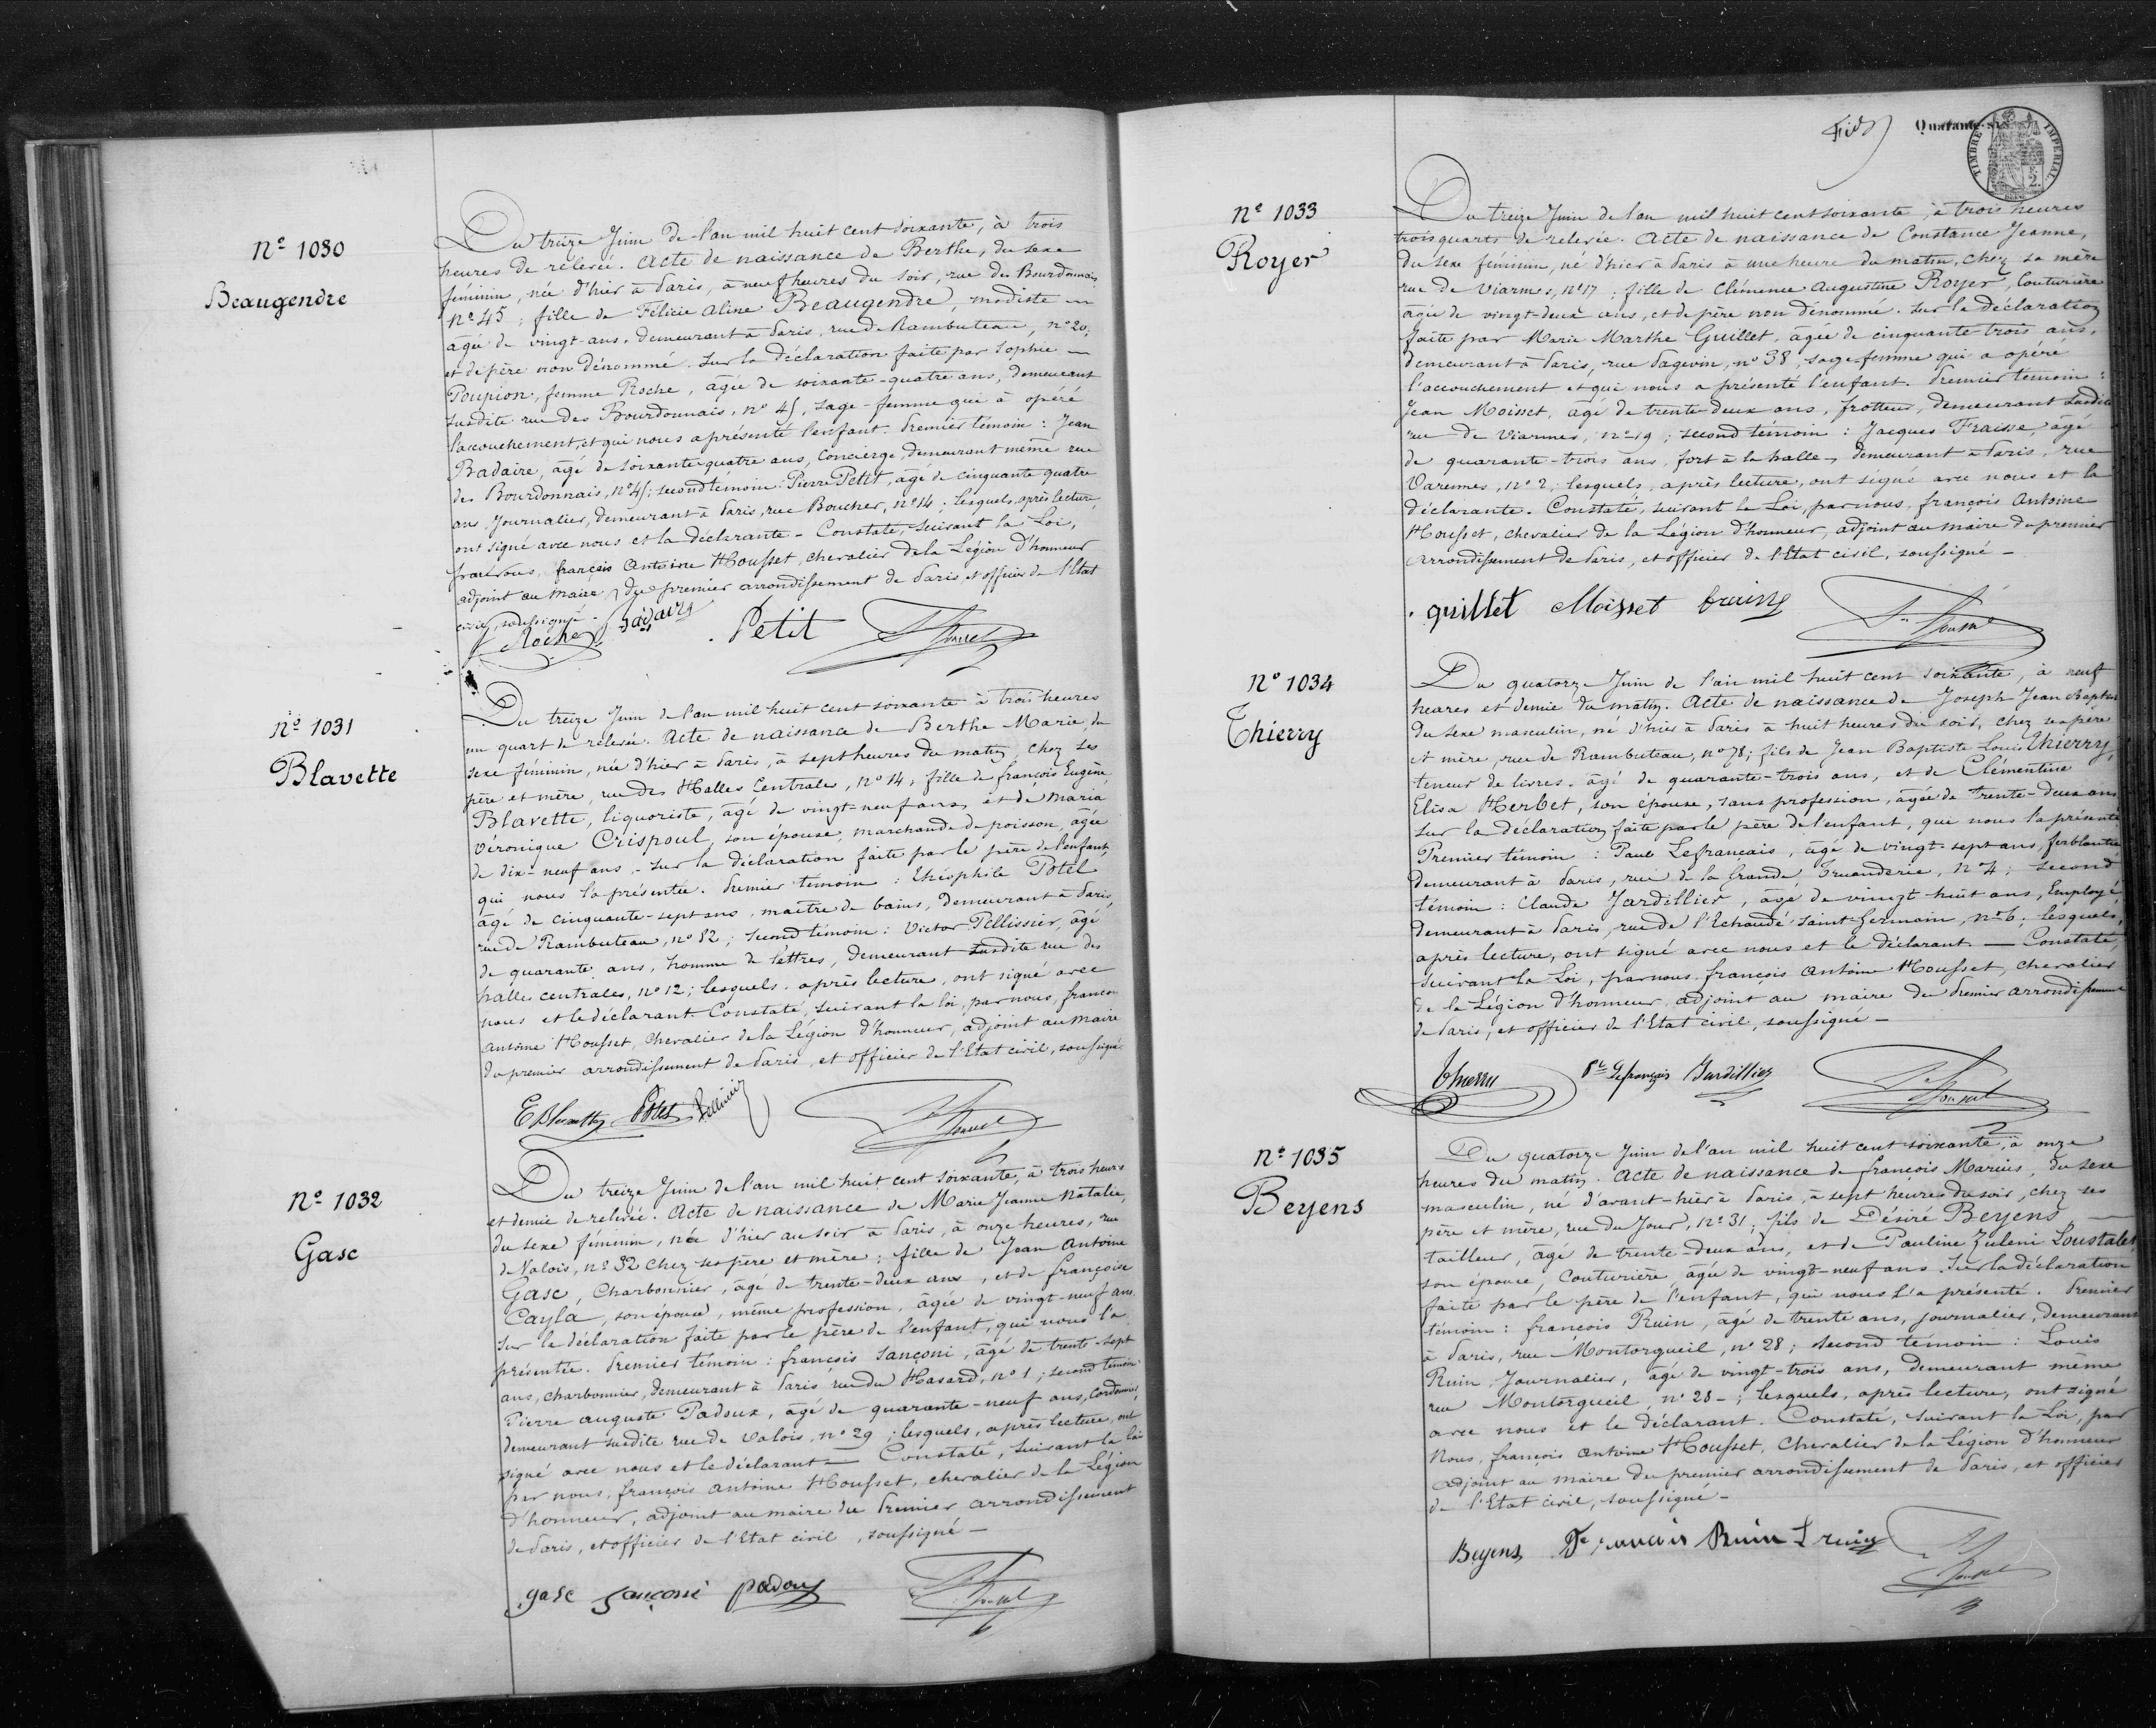 Nº 1030
Beaugendre
Du treize Juin de l'an mil huit cent soixante, à trois
heures de relevée. Acte de naissance de Berthe, du sexe
féminin, née d'hier à Paris, à neuf heures du soir, rue des Bourdonnais,
nº 45; fille de Félicie Aline Beaugendre, modiste
agée de vingt-ans, demeurant à Paris, rue de Rambuteau, nº 20;
et de père non dénommé. Sur la déclaration faite par Sophie
Poupion, femme Roche, agée de soixante-quatre ans, demeurant
susdite rue des Bourdonnais, nº 45, sage-femme qui à opéré
l'accouchement, et qui nous a présenté l'enfant. Premier témoin: Jean
Badaire, âgé de soixante quatre ans, Concierge demeurant même rue
des Bourdonnais, nº 45; second temoin: Pierre Petit, âgé de cinquante quatre
ans, Journalier, demeurant à Paris, rue Boucher, nº 14; lesquels, après lecture,
ont signé avec nous et la déclarante - Constaté, suivant la Loi,
par nous, françois Antoine Housset, chevalier de la Légion d'honneur
adjoint au maire du premier arrondissement de Paris, et officier de l'Etat
civil, soussigné.
Roche Badaire Petit
Nº 1031
Blavette
Du treize Juin de l'an mil huit cent soixante à trois heures
un quart de relevée. Acte de naissance de Berthe Marie, du
sexe féminin, née d'hier à Paris, à sept heures du matin, chez ses
père et mère, rue des Halles Centrales, nº 14; fille de françois Eugène
Blavette, liquoriste, âgé de vingt-neuf ans, et de Maria
véronique Crispoul, son épouse, marchande de poisson, agée
de dix-neuf ans. - Sur la déclaration faite par le père de l'enfant,
qui nous l'a présentée. Premier temoin: Théophile Potel
âgé de cinquante-sept ans, maître de bains, demeurant à Paris,
rue de Rambuteau, nº 82; second témoin: Victor Pellissier, âgé
de quarante ans, homme de lettres, demeurant susdite rue des
halles centrales, nº 12; lesquels, après lecture, ont signé avec
nous et le déclarant. Constaté, suivant la loi, par nous, françois
Antoine Housset, Chevalier de la Légion d'honneur, adjoint au Maire
du premier arrondissement de Paris, et officier de l'Etat civil, soussigné
E Blavette Potel Pellissier
Nº 1032
Gasc
Du treize Juin de l'an mil huit cent soixante, à trois heures
et demie de relevée. Acte de naissance de Marie Jeanne Natalie,
du sexe féminin, née d'hier au soir à Paris, à onze heures, rue
de Valois, nº 32 chez ses père et mère; fille de Jean Antoine
Gasc, Charbonnier, âgé de trente-deux ans, et de françoise
Cayla, son épouse, même profession, âgée de vingt-neuf ans.
Sur la déclaration faite par le père de l'enfant, qui nous l'a
présentée. Premier témoin: françois Sançoni, âgé de trente-sept
ans, charbonnier, demeurant à Paris rue du Hasard, nº 1; second témoin
Pierre auguste Padoux, âgé de quarante-neuf ans, Cordonnier,
demeurant susdite rue de Valois, nº 29; lesquels, après lecture, ont
signé avec nous et le déclarant - Constaté, suivant la loi
par nous, françois Antoine Housset, chevalier de la Légion
d'honneur, adjoint au maire du Premier arrondissement
de Paris, et officier de l'Etat civil, soussigné -
gasc sançoni padoux
Quarante-six
TIMBRE IMPERIAL
Nº 1033
Royer
Du treize Juin de l'an mil huit cent soixante, à trois heures
trois quarts de relevée. Acte de naissance de Constance Jeanne,
du sexe féminin, né d'hier à Paris à une heure du matin, chez sa mère
rue de Viarmes, nº 17; fille de Clémence Augustine Royer, Couturière
âgée de vingt-deux ans, et de père non dénommé. Sur la déclaration
faite par Marie Marthe Guillet, agée de cinquante-trois ans,
demeurant à Paris, rue Pagevin, nº 38, sage-femme qui a opéré
l'accouchement et qui nous a présenté l'enfant. Premier témoin:
Jean Moisset, âgé de trente-deux ans, frotteur, demeurant susdite
rue de Viarmes, nº 19; second témoin: Jacques Fraisse, âgé
de quarante-trois ans, fort à la halle, demeurant à Paris, rue
Varennes, nº 2; lesquels, après lecture, ont signé avec nous et la
déclarante. Constaté, suivant la Loi, par nous, françois Antoine
Housset, chevalier de la Légion d'honneur, adjoint au maire du premier
arrondissement de Paris, et officier de l'Etat civil, soussigné -
guillet Moisset
Nº 1034
Thierry
Du quatorze Juin de l'an mil huit cent soixante, à neuf
heures et demie du matin. Acte de naissance de Joseph Jean Baptiste
du sexe masculin, né d'hier à Paris à huit heures du soir, chez ses père
et mère, rue de Rambuteau, nº 78; fils de Jean Baptiste Louis Thierry,
teneur de livres, âgé de quarante-trois ans, et de Clémentine
Elisa Herbet, son épouse, sans profession, âgée de trente-deux ans
sur la déclaration faite par le père de l'enfant, qui nous l'a présenté
Premier témoin: Paul Lefrancais, âgé de vingt-sept ans, ferblantier
demeurant à Paris, rue de la Grande Truanderie, nº 4; second
témoin: Claude Jardillier, âgé de vingt huit ans, Employé,
demeurant à Paris, rue de l'Echaudé Saint-Germain, nº 6; lesquels,
après lecture, ont signé avec nous et le déclarant. - Constaté,
suivant la Loi, par nous, françois Antoine Housset, chevalier
de la Légion d'honneur, adjoint au maire du Premier arrondissement
de Paris, et officier de l'Etat civil, soussigné -
Thierry Pl Lefrançais Jardillier
Nº 1035
Beyens
Du quatorze Juin de l'an mil huit cent soixante, à onze
heures du matin. Acte de naissance de françois Marius, du sexe
masculin, né d'avant-hier à Paris, à sept heures du soir, chez ses
père et mère, rue du Jour, nº 31; fils de Désiré Beyens
tailleur, agé de trente-deux ans, et de Pauline Zuleni Loustalet
son épouse, Couturière, âgée de vingt-neuf ans. Sur la déclaration
faite par le père de l'enfant, qui nous l'a présenté. Premier
témoin: françois Ruin, âgé de trente ans, journalier, demeurant
à Paris, rue Montorgueil, nº 28; second témoin: Louis
Ruin, Journalier, âgé de vingt-trois ans, demeurant même
rue Montorgueil, nº 28 -; lesquels, après lecture, ont signé
avec nous et le déclarant. Constaté, suivant la Loi, par
Nous, françois Antoine Housset, Chevalier de la Légion d'honneur
adjoint au maire du premier arrondissement de Paris, et officier
de l'Etat civil, soussigné -
Beyens Ruin